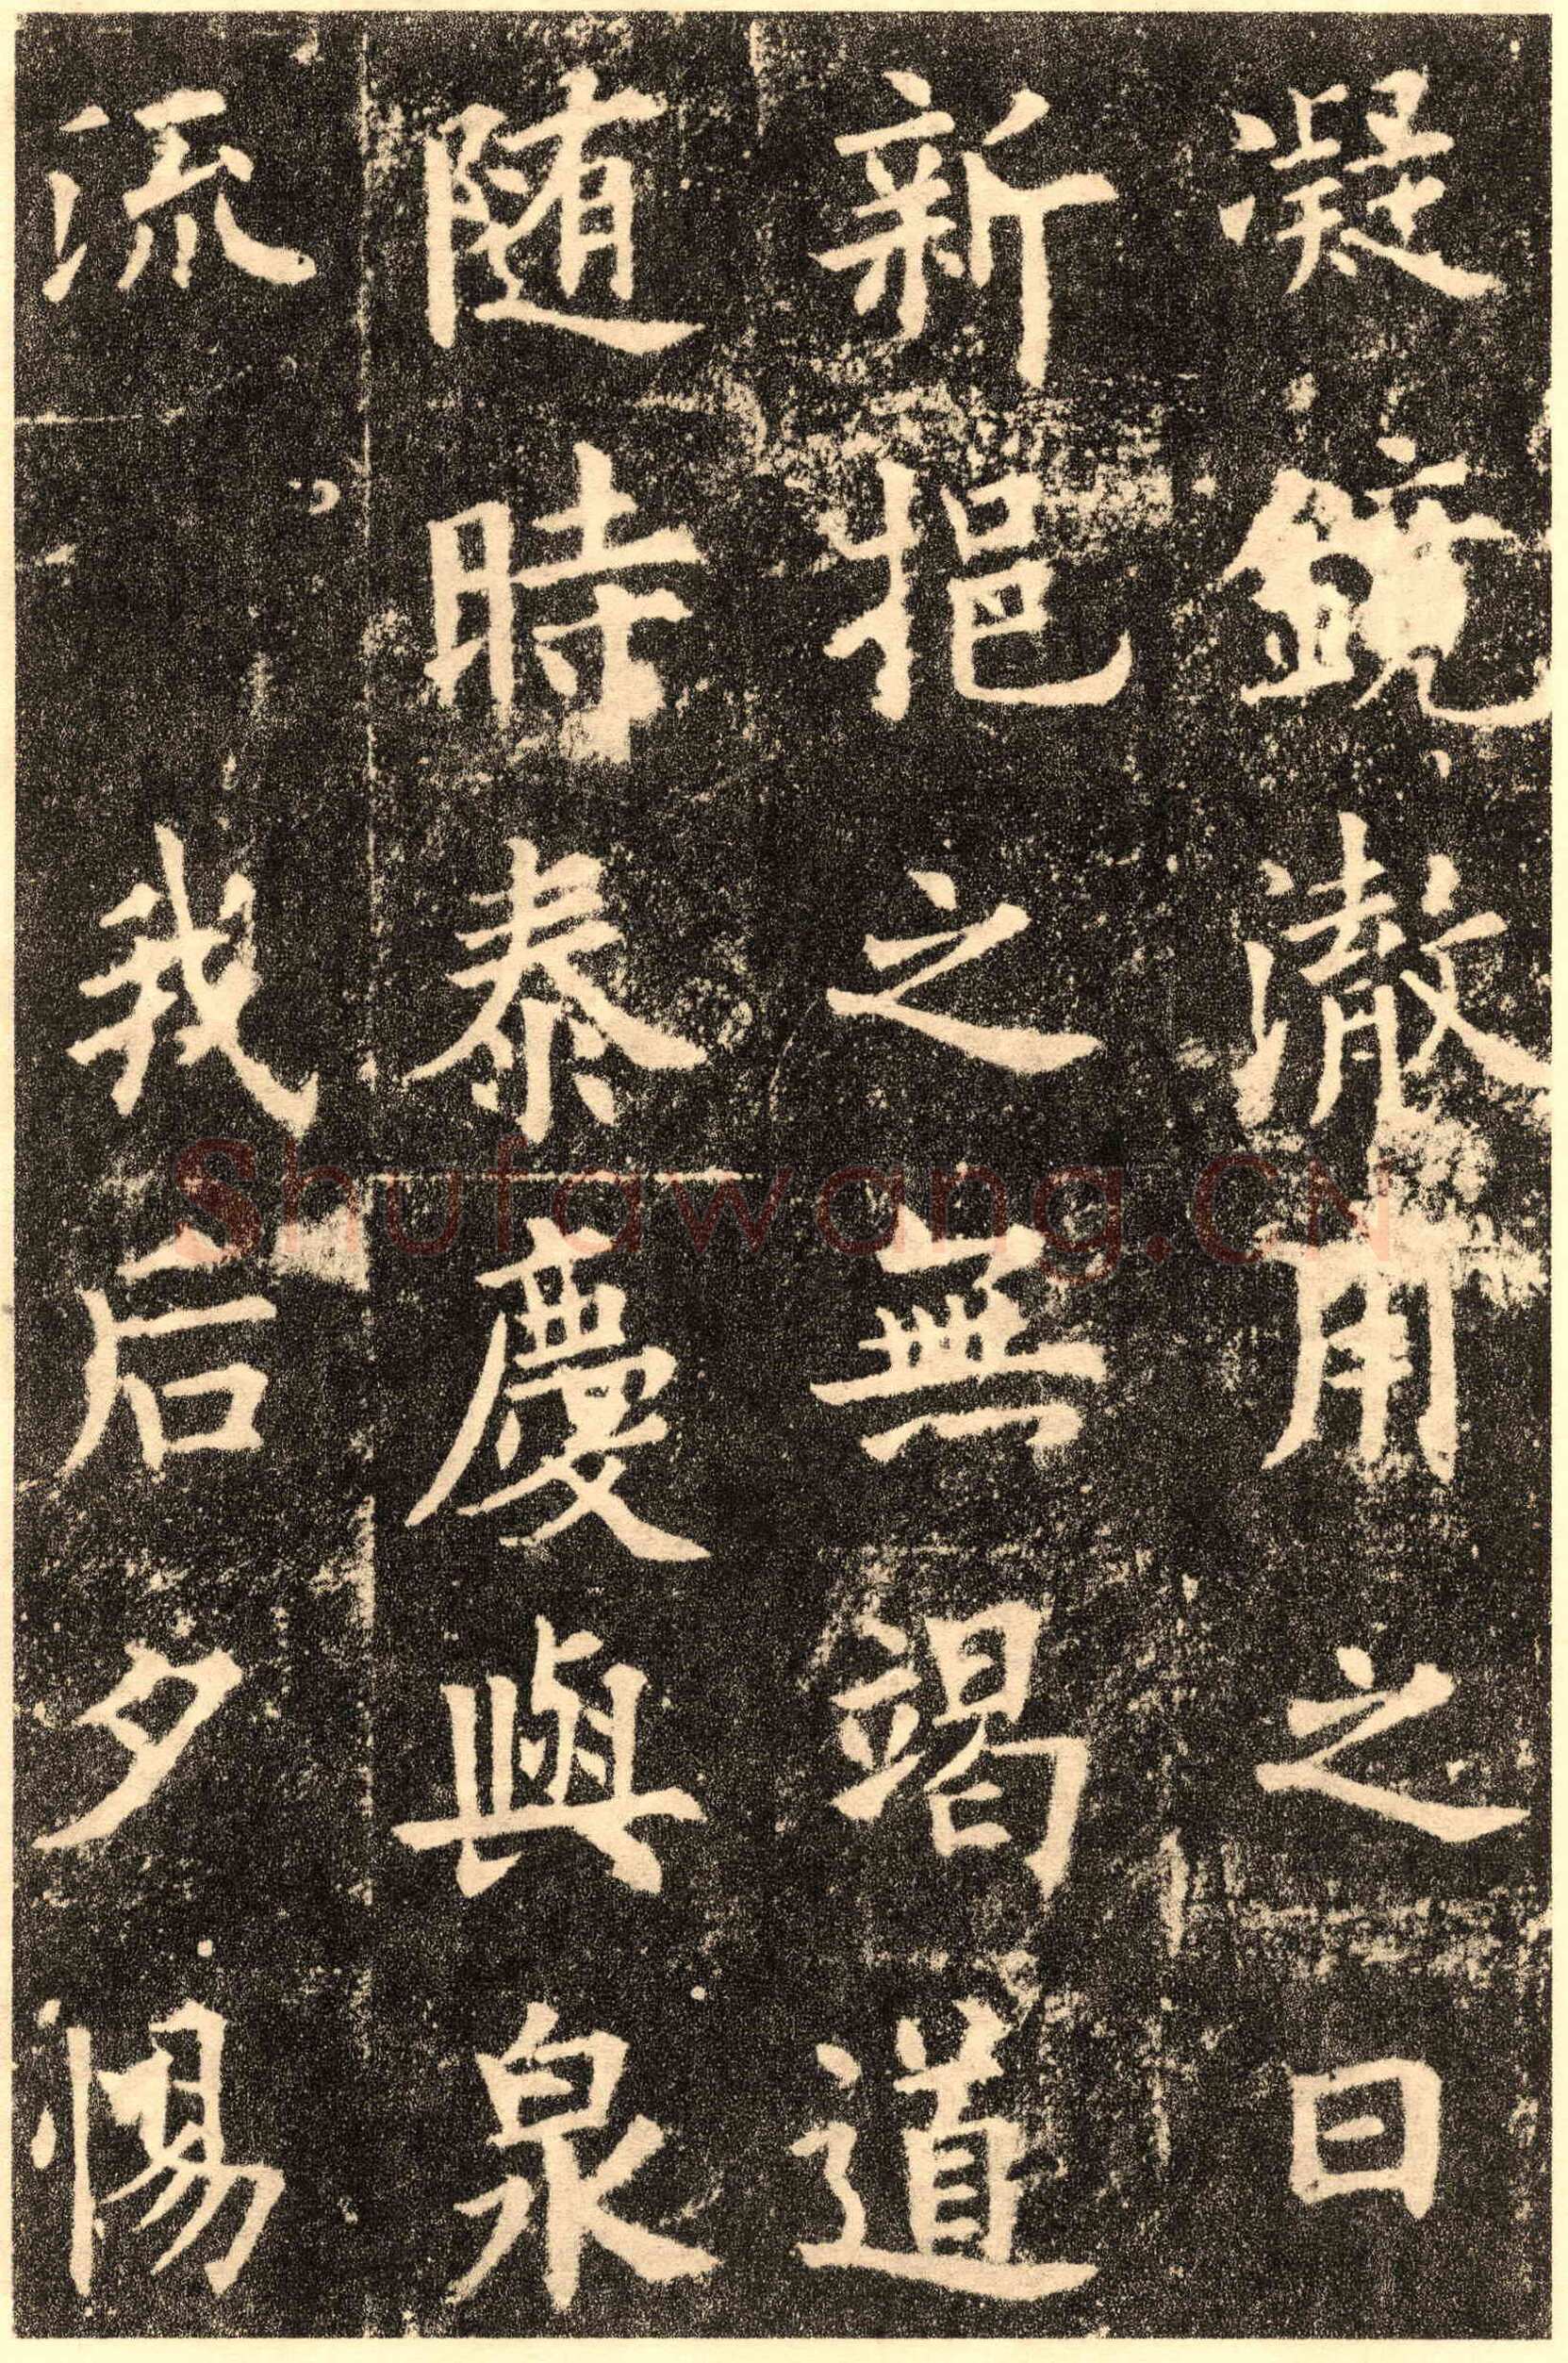 凝鏡澈用之日
新挹之無竭道
随時泰慶與泉
流我后夕惕
Shufawang.CN